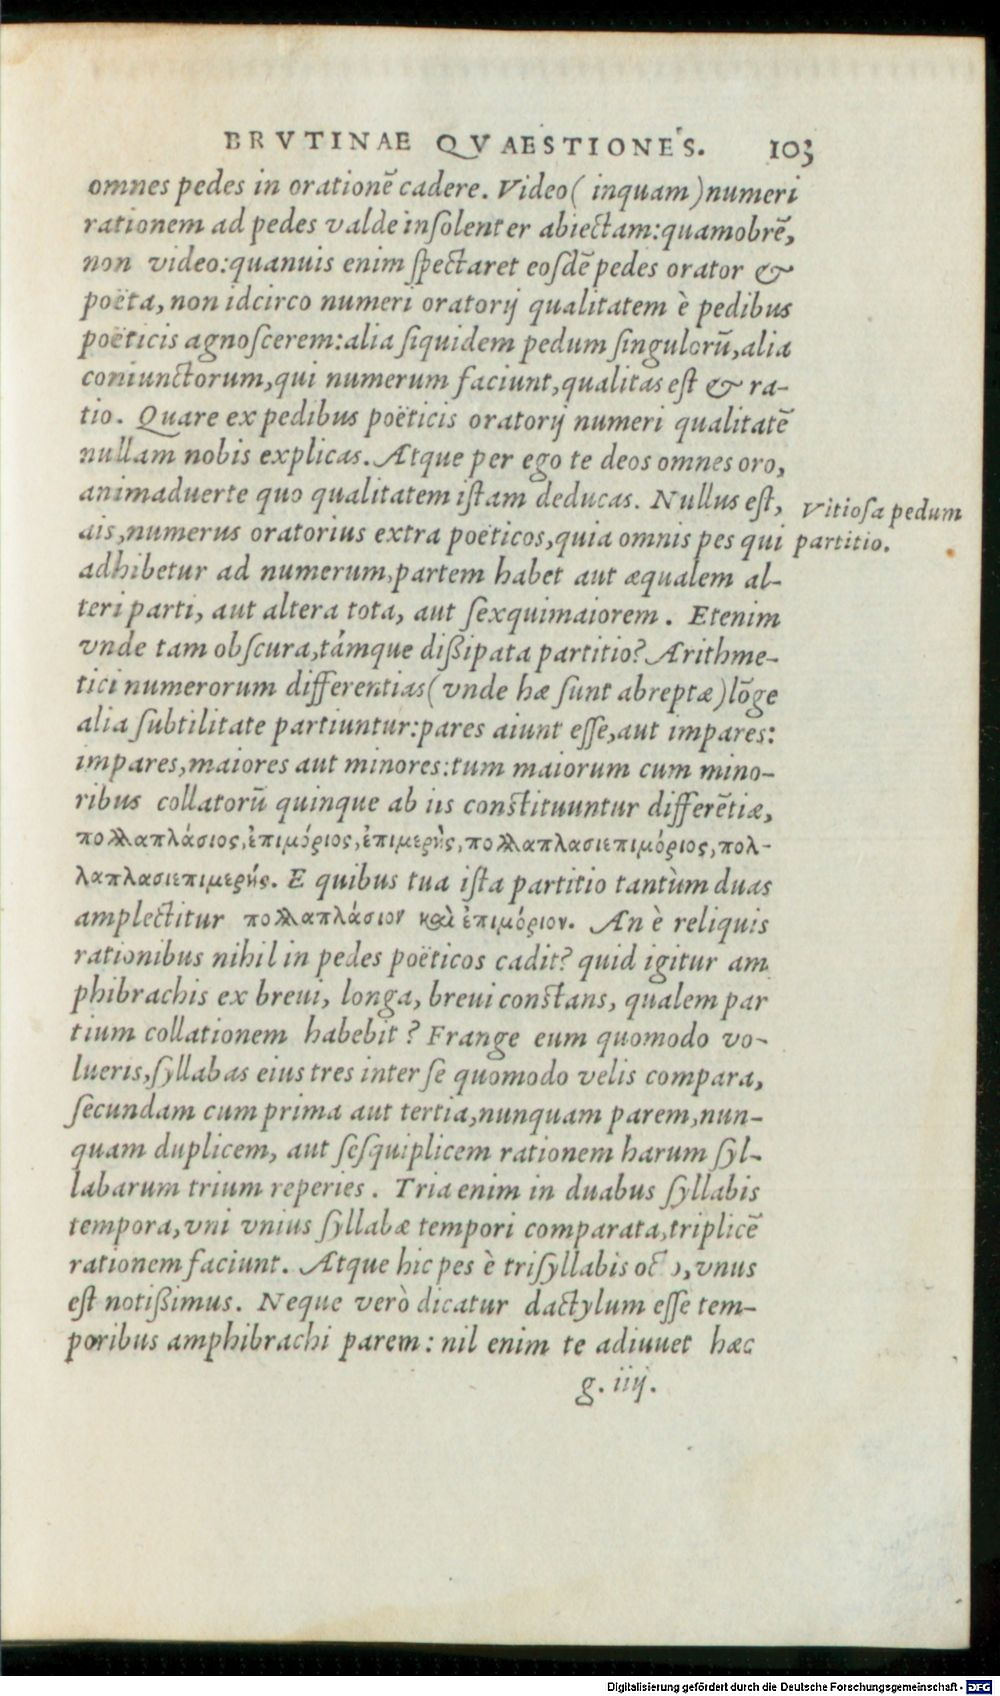 BRVTINAE QVAESTIONES. 103
omnes pedes in orationē cadere. Video ( inquam ) numeri
rationem ad pedes valde insolenter abiectam: quamobrē,
non video: quanuis enim spectaret eosdē pedes orator &
poëta, non idcirco numeri oratorij qualitatem è pedibus
poëticis agnoscerem: alia siquidem pedum singulorū, alia
coniunctorum, qui numerum faciunt, qualitas est & ra-
tio. Quare ex pedibus poëticis oratorij numeri qualitatē
nullam nobis explicas. Atque per ego te deos omnes oro,
animaduerte quo qualitatem istam deducas. Nullus est,
Vitiosa pedum
partitio.
ais, numerus oratorius extra poëticos, quia omnis pes qui
adhibetur ad numerum, partem habet aut æqualem al-
teri parti, aut altera tota, aut sexquimaiorem. Etenim
vnde tam obscura, támque dißipata partitio? Arithme-
tici numerorum differentias ( vnde hæ sunt abreptæ ) lōge
alia subtilitate partiuntur: pares aiunt esse, aut impares:
impares, maiores aut minores: tum maiorum cum mino-
ribus collatorū quinque ab iis constituuntur differētiæ,
πολλαπλάσιος, ἐπιμόριος, ἐπιμερὴς, πολλαπλασιεπιμόριος, πολ-
λαπλασιεπιμερής. E quibus tua ista partitio tantùm duas
amplectitur πολλαπλάσιον καὶ ἐπιμόριον. An è reliquis
rationibus nihil in pedes poëticos cadit? quid igitur am
phibrachis ex breui, longa, breui constans, qualem par
tium collationem habebit? Frange eum quomodo vo-
lueris, syllabas eius tres inter se quomodo velis compara,
secundam cum prima aut tertia, nunquam parem, nun-
quam duplicem, aut sesquiplicem rationem harum syl-
labarum trium reperies. Tria enim in duabus syllabis
tempora, vni vnius syllabæ tempori comparata, triplicē
rationem faciunt. Atque hic pes è trisyllabis octo, vnus
est notißimus. Neque verò dicatur dactylum esse tem-
poribus amphibrachi parem: nil enim te adiuuet hæc
g. iiij.
Digitalisierung gefördert durch die Deutsche Forschungsgemeinschaft - DFG